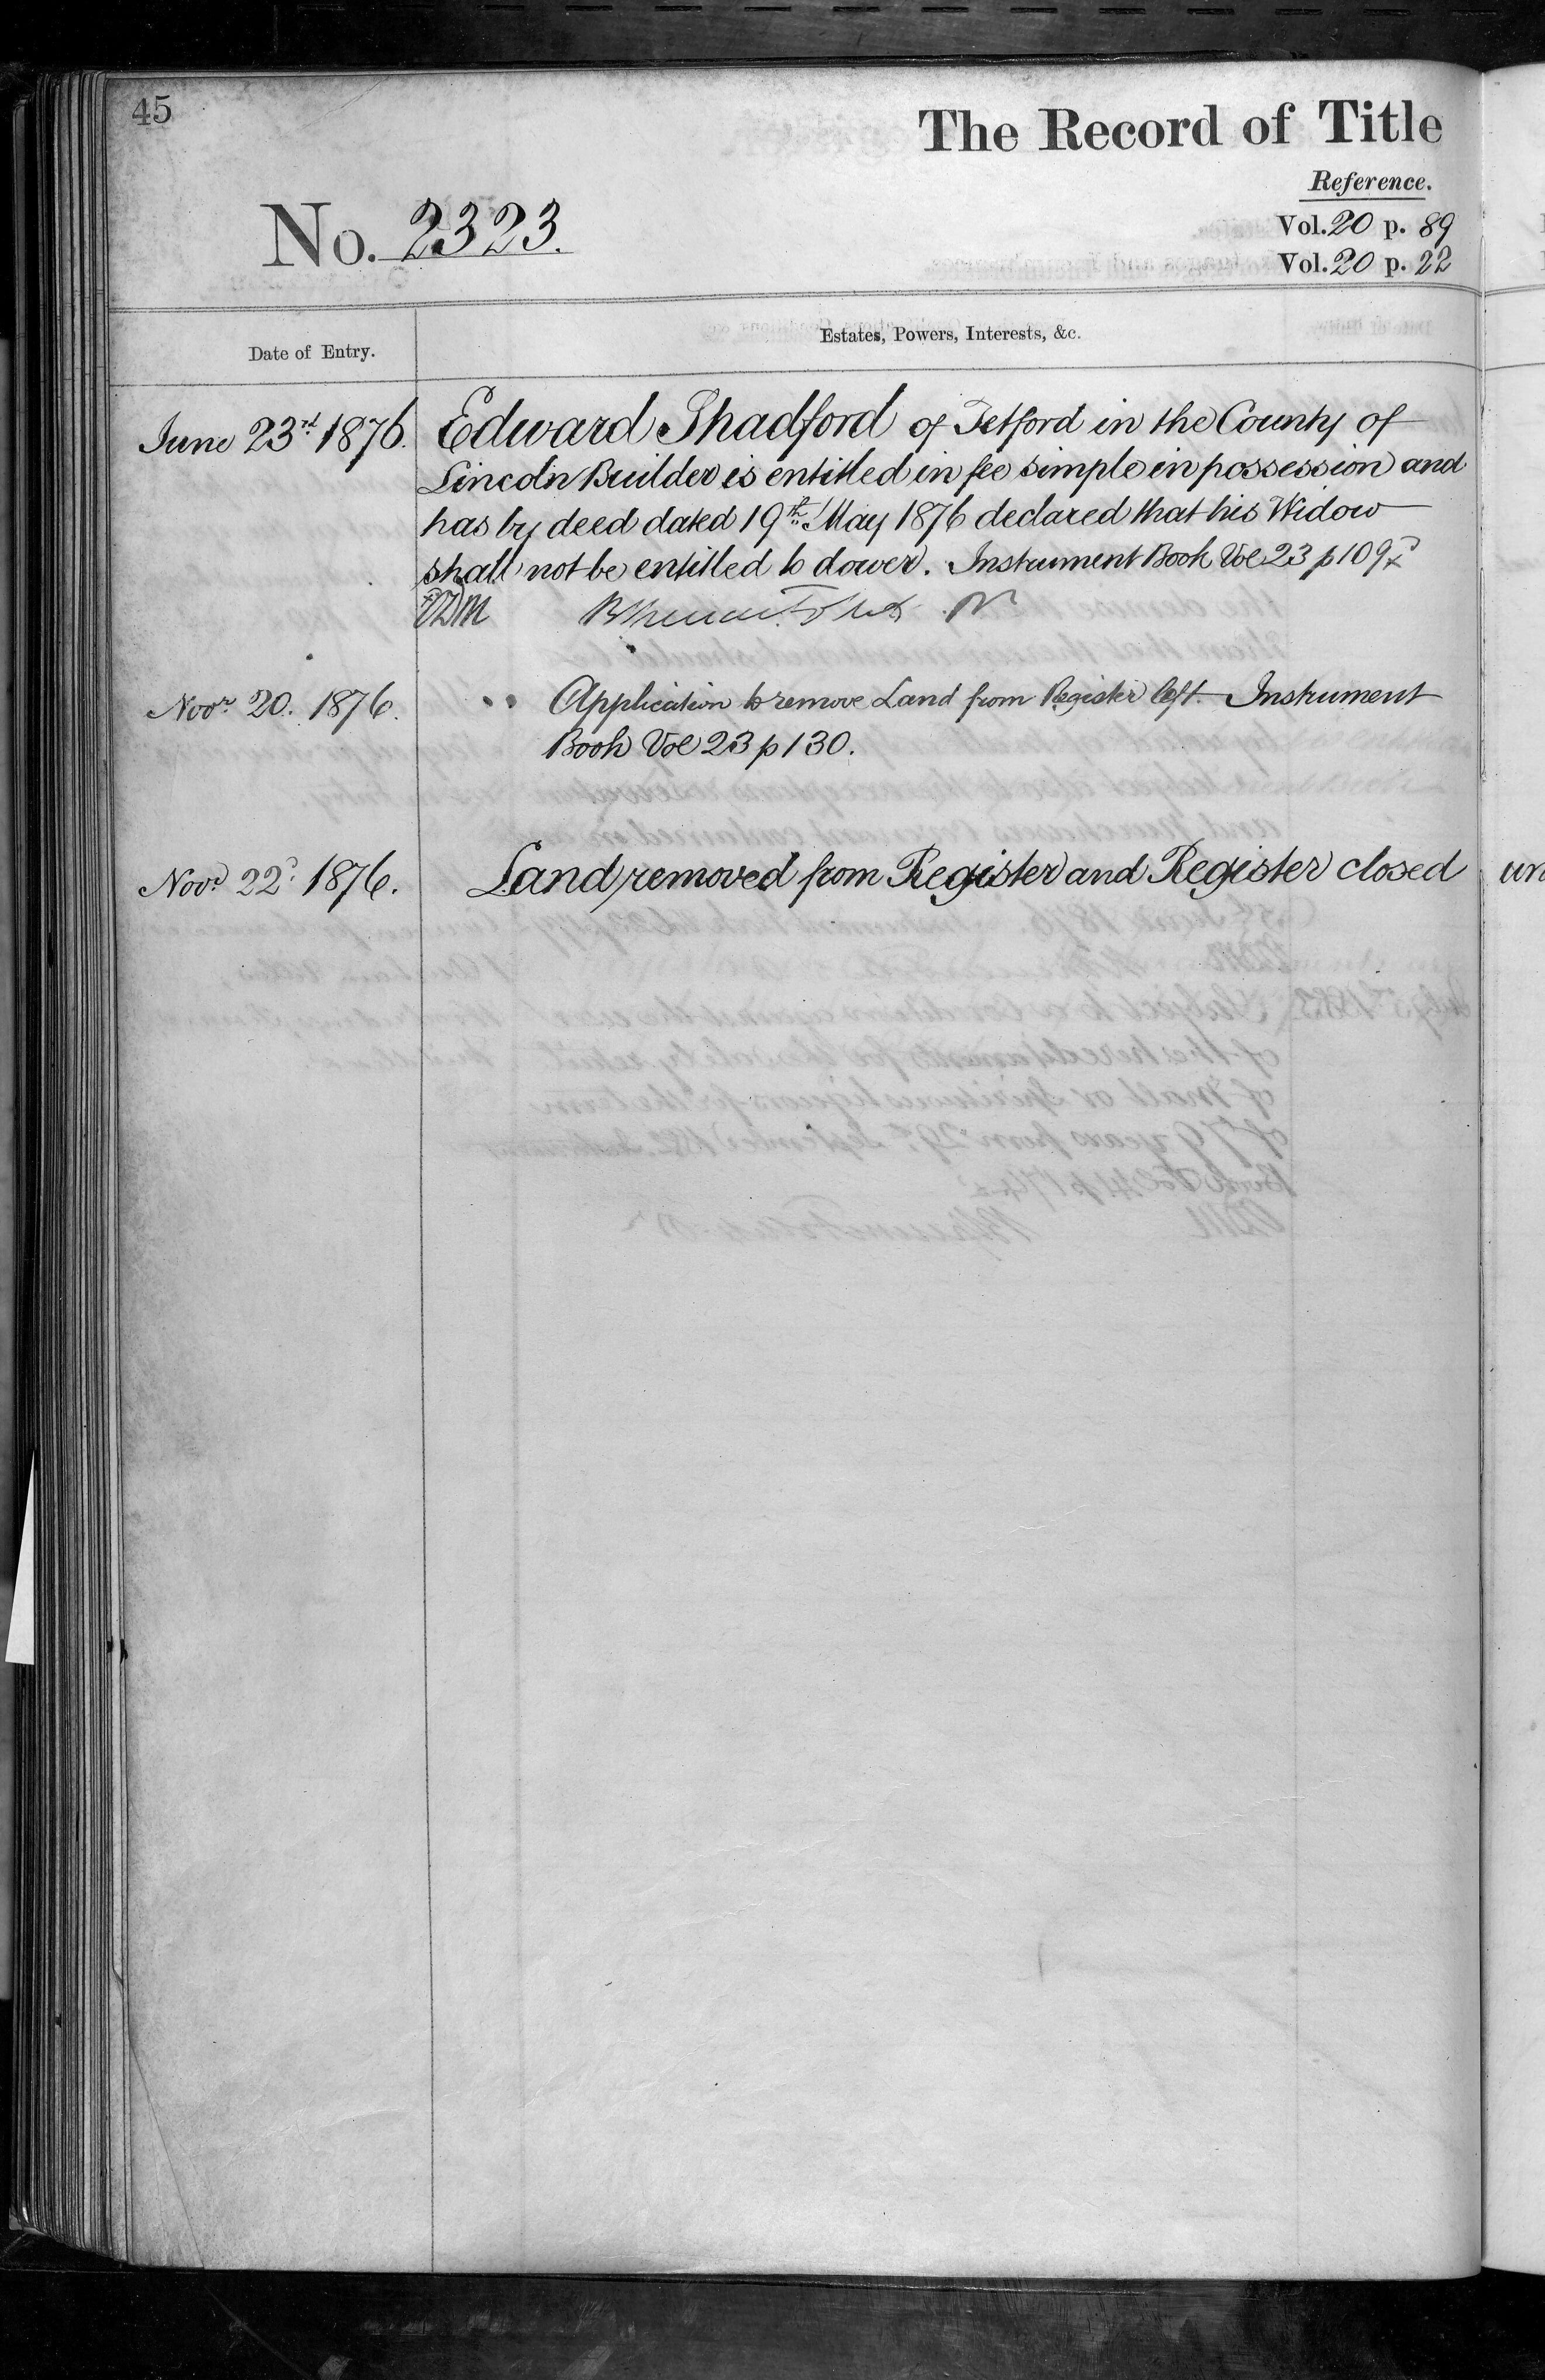 45
The Record of Title
Reference.
No. 2323.
Vol. 20 p. 89
Vol. 20 p. 22
Date of Entry.
Estates, Powers, Interests, &c.
June 23rd 1876. Edward Shadford of Tetford in the County of
Lincoln Builder is entitled in fee simple in possession and
has by deed dated 19th May 1876 declared that his Widow
shall not be entitled to dower. Instrument Book Vol 23 p 109
Novr 20. 1876. Application to remove Land from Register left. Instrument
Book Vol 23 p 130.
Novr 22d 1876. Land removed from Register and Register closed